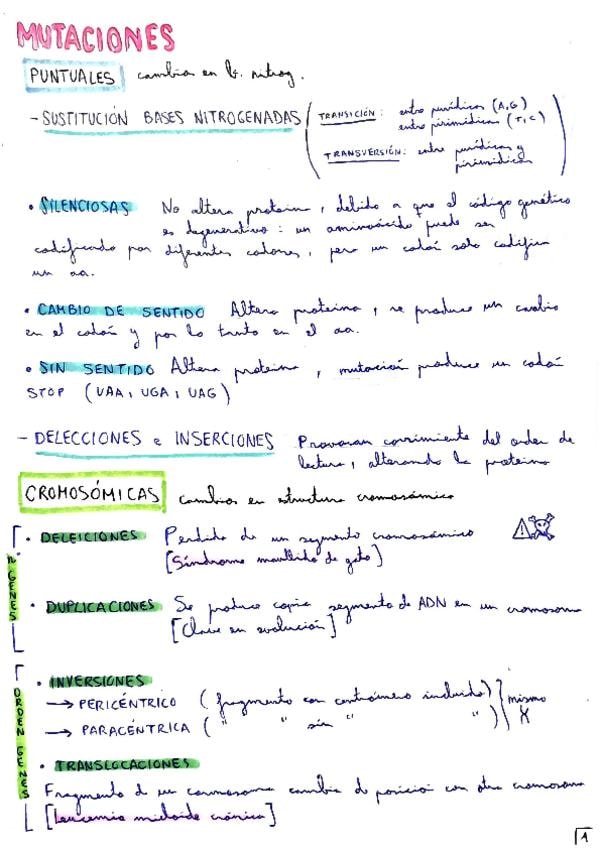 MUTACIONES
PUNTUALES cambios en b. nitrog.
- SUSTITUCIÓN BASES NITROGENADAS
TRANSICIÓN: entre puridicas (A,G)
entre pirimidicas (T,C)
TRANSVERSIÓN: entre puridicas y
pirimidicas
• SILENCIOSAS No altera proteina, debido a que el código genético
es degenerativo: un aminoácido puede ser
codificado por diferentes codones, pero un codón solo codifica
un aa.
• CAMBIO DE SENTIDO Altera proteina, se produce un cambio
en el codón y por lo tanto en el aa.
• SIN SENTIDO Altera proteina, mutación produce un codón
STOP (UAA, UGA, UAG)
- DELECCIONES e INSERCIONES Provocan corrimiento del orden de
lectura, alterando la proteina
CROMOSÓMICAS cambios en estructura cromosómica
Nº GENES
• DELEICIONES Perdida de un segmento cromosómico
[Síndrome maullido de gato]
• DUPLICACIONES Se produce copia segmento de ADN en un cromosoma
[Clave en evolución]
ORDEN GENES
• INVERSIONES
→ PERICÉNTRICO (fragmento con centrómero incluido)
→ PARACÉNTRICA (" " sin " ")
mismo
X
• TRANSLOCACIONES
Fragmento de un cormosoma cambia de posición con otro cromosoma
[Leucemia mieloide crónica]
1